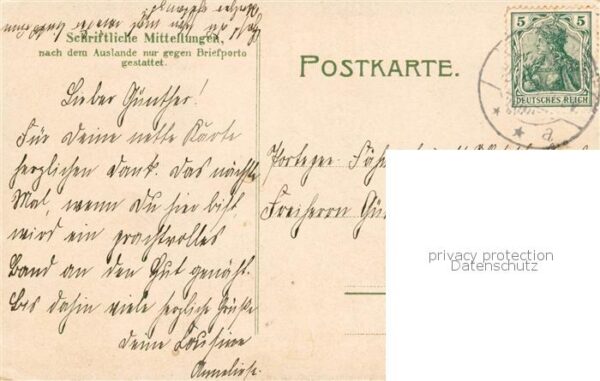 Schriftliche Mitteilungen,
nach dem Auslande nur gegen Briefporto
gestattet.
POSTKARTE.
5 5
DEUTSCHES REICH
a
Lieber Günther!
Für Deine nette Karte
herzlichen Dank. Das nächste
Mal, wenn Du hier bist,
wird ein prachtvolles
Band an den Hut genäht.
Bis dahin viele herzliche Grüße
Deine Cousine
Anneliese.
Portepee Fähn
Freiherrn Gün
privacy protection
Datenschutz